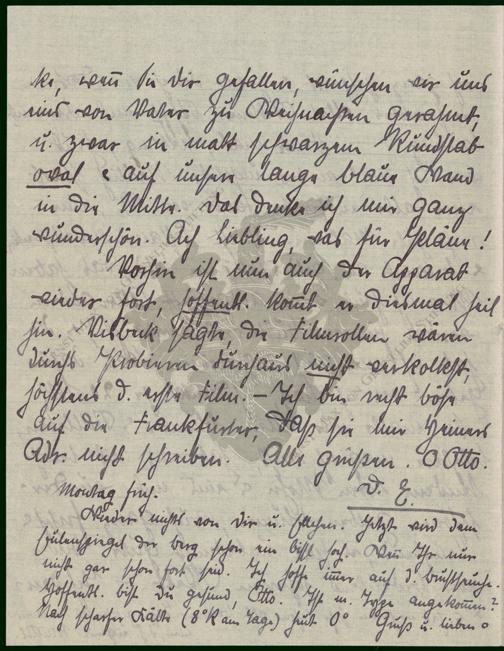 ke, wenn sie dir gefallen, wünschen wir uns
eins von Vater zu Weihnachten gerahmt,
u. zwar in matt schwarzem Rundstab
oval & auf unsere lange blaue Wand
in die Mitte. Das denke ich mir ganz
wunderschön. Ach Liebling, was für Pläne!
Vorhin ist nun auch der Apparat
wieder fort, hoffentl. kommt er diesmal heil
hin. Visbeck sagte, die Filmrollen wären
durchs Probieren durchaus nicht verkollkst,
höchstens d. erste Film. – Ich bin recht böse
auf die Frankfurter, daß sie mir Heiners
Adr. nicht schreiben. Alle grüßen. O Otto.
D. E.
Montag früh.
Wieder nichts von dir u. Ehlchen. Jetzt wird dem
Eulenspiegel der Berg schon ein bißl hoch. Wenn Ihr nur
nicht gar schon fort seid. Ich hoffe immer auf d.
Hoffentl. bist du gesund, Otto. Ist m. Type angekommen?
Nach scharfer Kälte (8°R am Tage) heut 0° Gruß u. lieben